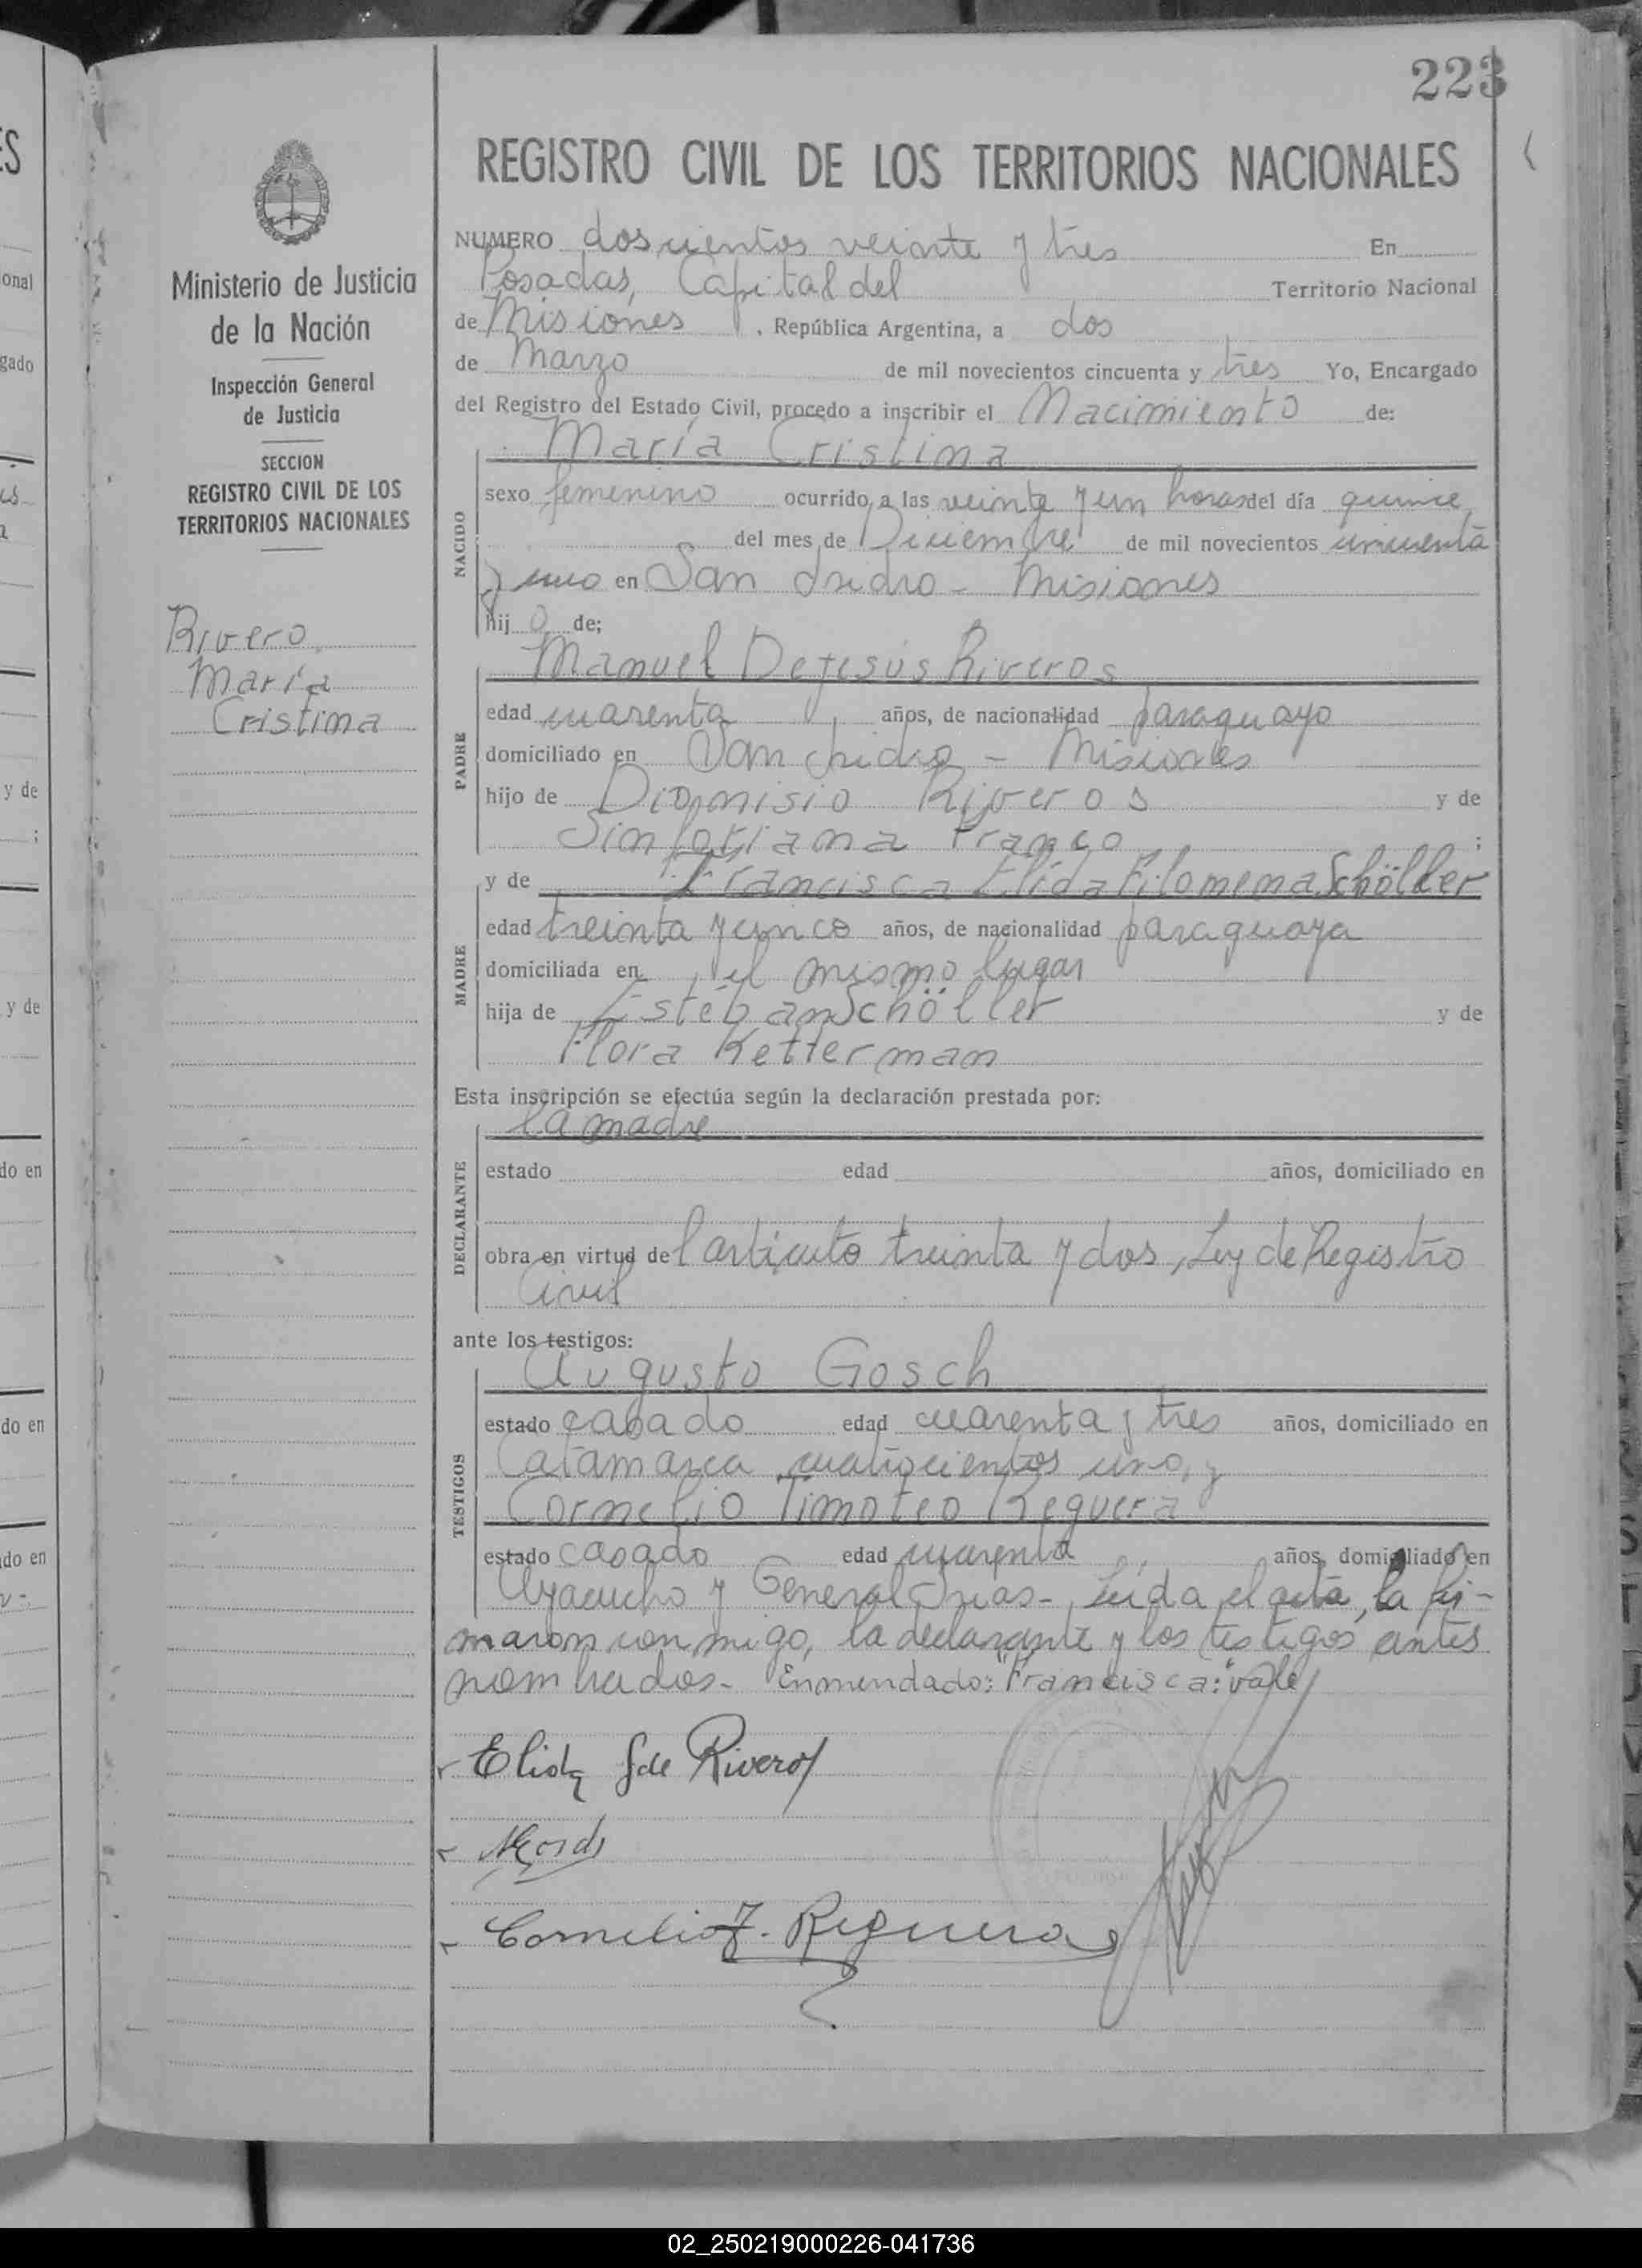 223
REGISTRO CIVIL DE LOS TERRITORIOS NACIONALES
Ministerio de Justicia
de la Nación
Inspección General
de Justicia
SECCION
REGISTRO CIVIL DE LOS
TERRITORIOS NACIONALES
Rivero
María
Cristina
NUMERO doscientos veinte y tres En
Posadas, Capital del Territorio Nacional
de Misiones, República Argentina, a dos
de Marzo de mil novecientos cincuenta y tres Yo, Encargado
del Registro del Estado Civil, procedo a inscribir el Nacimiento de:
María Cristina
NACIDO
sexo femenino ocurrido a las veinte y un horas del día quince
del mes de Diciembre de mil novecientos cincuenta
y uno en San Isidro - Misiones
hij a de;
PADRE
Manuel Dejesús Riveros
edad cuarenta años, de nacionalidad paraguayo
domiciliado en San Isidro - Misiones
hijo de Dionisio Riveros y de
Sinforiana Franco ;
MADRE
y de Francisca Elida Filomena Schöller
edad treinta y cinco años, de nacionalidad paraguaya
domiciliada en el mismo lugar
hija de Estéban Schöller y de
Flora Ketterman
Esta inscripción se efectúa según la declaración prestada por:
DECLARANTE
la madre
estado edad años, domiciliado en
obra en virtud del artículo treinta y dos, Ley de Registro
Civil
ante los testigos:
TESTIGOS
Augusto Gosch
estado casado edad cuarenta y tres años, domiciliado en
Catamarca cuatrocientos uno, y
Cornelio Timoteo Reguera
estado casado edad cuarenta años, domiciliado en
Ayacucho y General - Leida el acta, la fir-
maron conmigo, la declarante y los testigos antes
nombrados.- Enmendado: "Francisca": vale
Elida S de Riveros
Cornelio T. Reguera
onal
gado
y de
;
y de
do en
do en
do en
02_250219000226-041736